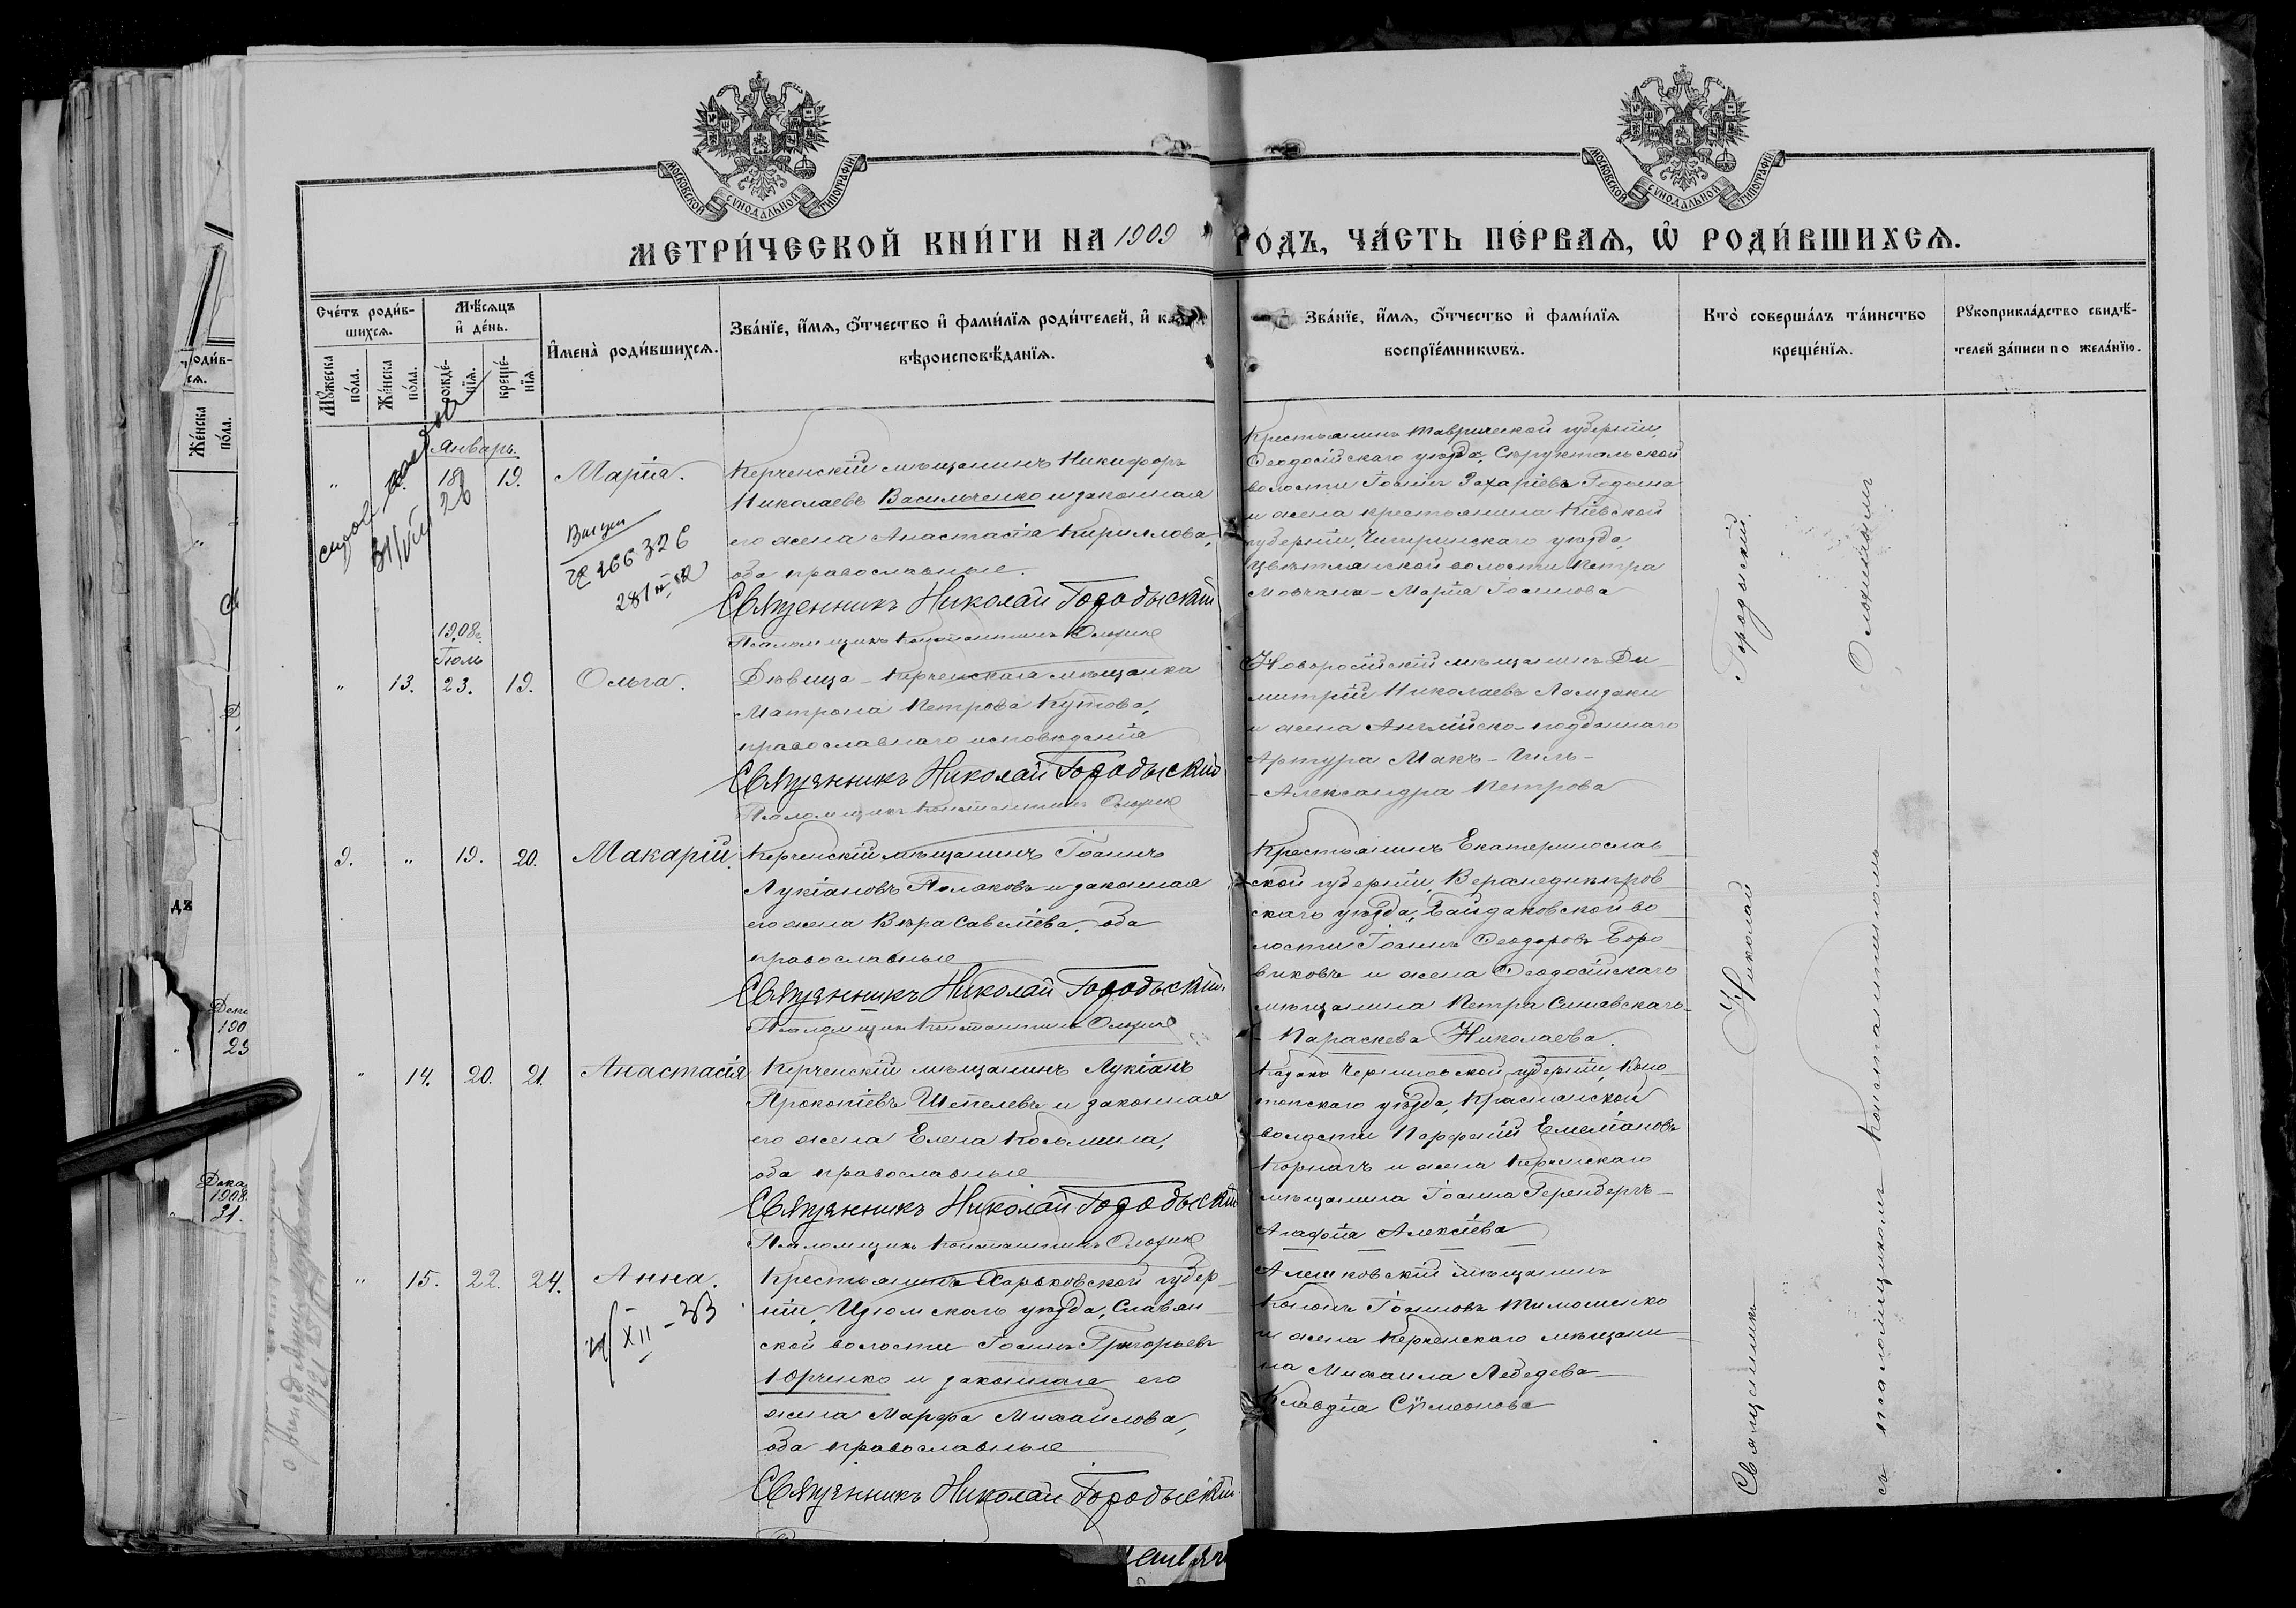 МОСКОВСКОЙ СѴНОДАЛЬНОЙ ТИПОГРАФІИ
МОСКОВСКОЙ СѴНОДАЛЬНОЙ ТИПОГРАФІИ
МЕТРИ́ЧЕСКОЙ КНИ́ГИ НА 1909 ГОДЪ, ЧА́СТЬ ПЕ́РВАѦ, Ѡ РОДИ́ВШИХСѦ.
Сче́тъ роди́в-
шихсѧ.
Мѣ́сѧцъ
и҆ де́нь.
И҆мена̀ роди́вшихсѧ.
Зва́нїе, и҆́мѧ, ѻ҆́тчество и҆ фами́лїѧ роди́телей, и҆
вѣроисповѣ́данїѧ.
Зва́нїе, и҆́мѧ, ѻ҆́тчество и҆ фами́лїѧ
воспрїе́мникѡвъ.
Кто̀ соверша́лъ та́инство
креще́нїѧ.
Рꙋкоприкла́дство свидѣ́-
телей за́писи по жела́нїю.
Мꙋ́жеска
по́ла.
Же́нска
по́ла.
рожде́-
нїѧ.
креще́-
нїѧ.
Январь.
18 19. Марія.
28
31/VIII
266326
Керченскій мѣщанинъ Никифоръ
Николаевъ Васильченко и законная
его жена Анастасія Кириллова,
оба православные.
Священникъ Николай Городыскій
Псаломщикъ Константинъ
Крестьянинъ Таврической губерніи,
Ѳеодосійскаго уѣзда,
волости Іоаннъ Захаріевъ
и жена крестьянина Кіевской
губерніи, Чигиринскаго уѣзда,
волости Петра
Мовчана - Марія Іоаннова
1908г.
Іюль
" 13. 23. 19. Ольга.
Дѣвица - Керченская мѣщанка
Матрона Петрова Кутова,
православнаго исповѣданія
Священникъ Николай Городыскій
Псаломщикъ Константинъ
Новоросійскій мѣщанинъ Ди-
митрій Николаевъ
и жена Англійско-подданнаго
Артура Макъ-
- Александра Петрова
9. " 19. 20. Макарій.
Керченскій мѣщанинъ Іоаннъ
Лукіановъ Поляковъ и законная
его жена Вѣра Савеліева, оба
православные
Священникъ Николай Городыскій.
Псаломщикъ Константинъ
Крестьянинъ Екатеринослав-
ской губерніи, Верхнеднѣпров-
скаго уѣзда, Байдаковской во-
лости Іоаннъ Ѳеодоровъ Боро-
виковъ и жена Ѳеодосійскаго
мѣщанина Петра Синявскаго-
- Параскева Николаева.
" 14. 20. 21. Анастасія
Керченскій мѣщанинъ Лукіанъ
Прокопіевъ Шепелевъ и законная
его жена Елена Козьмина,
оба православные
Священникъ Николай Городыскій
Псаломщикъ Константинъ
Казакъ Черниговской губерніи, Коно-
топскаго уѣзда, Краснянской
волости Парфеній Емеліановъ
Корначъ и жена Керченскаго
мѣщанина Іоанна
Агафія Алексіева
" 15. 22. 24. Анна.
XII - 33
Крестьянинъ Харьковской губер-
ніи, Изюмскаго уѣзда, Славян-
ской волости Іоаннъ Григорьевъ
Юрченко и законная его
жена Марфа Михайлова,
оба православные
Священникъ Николай Городыскій
Алешковскій мѣщанинъ
Кононъ Іоанновъ Тимошенко
и жена Керченскаго мѣщани-
на Михаила Лебедева
Клавдія Сѵмеонова
Священникъ Николай Городыскій.
съ псаломщикомъ Константиномъ